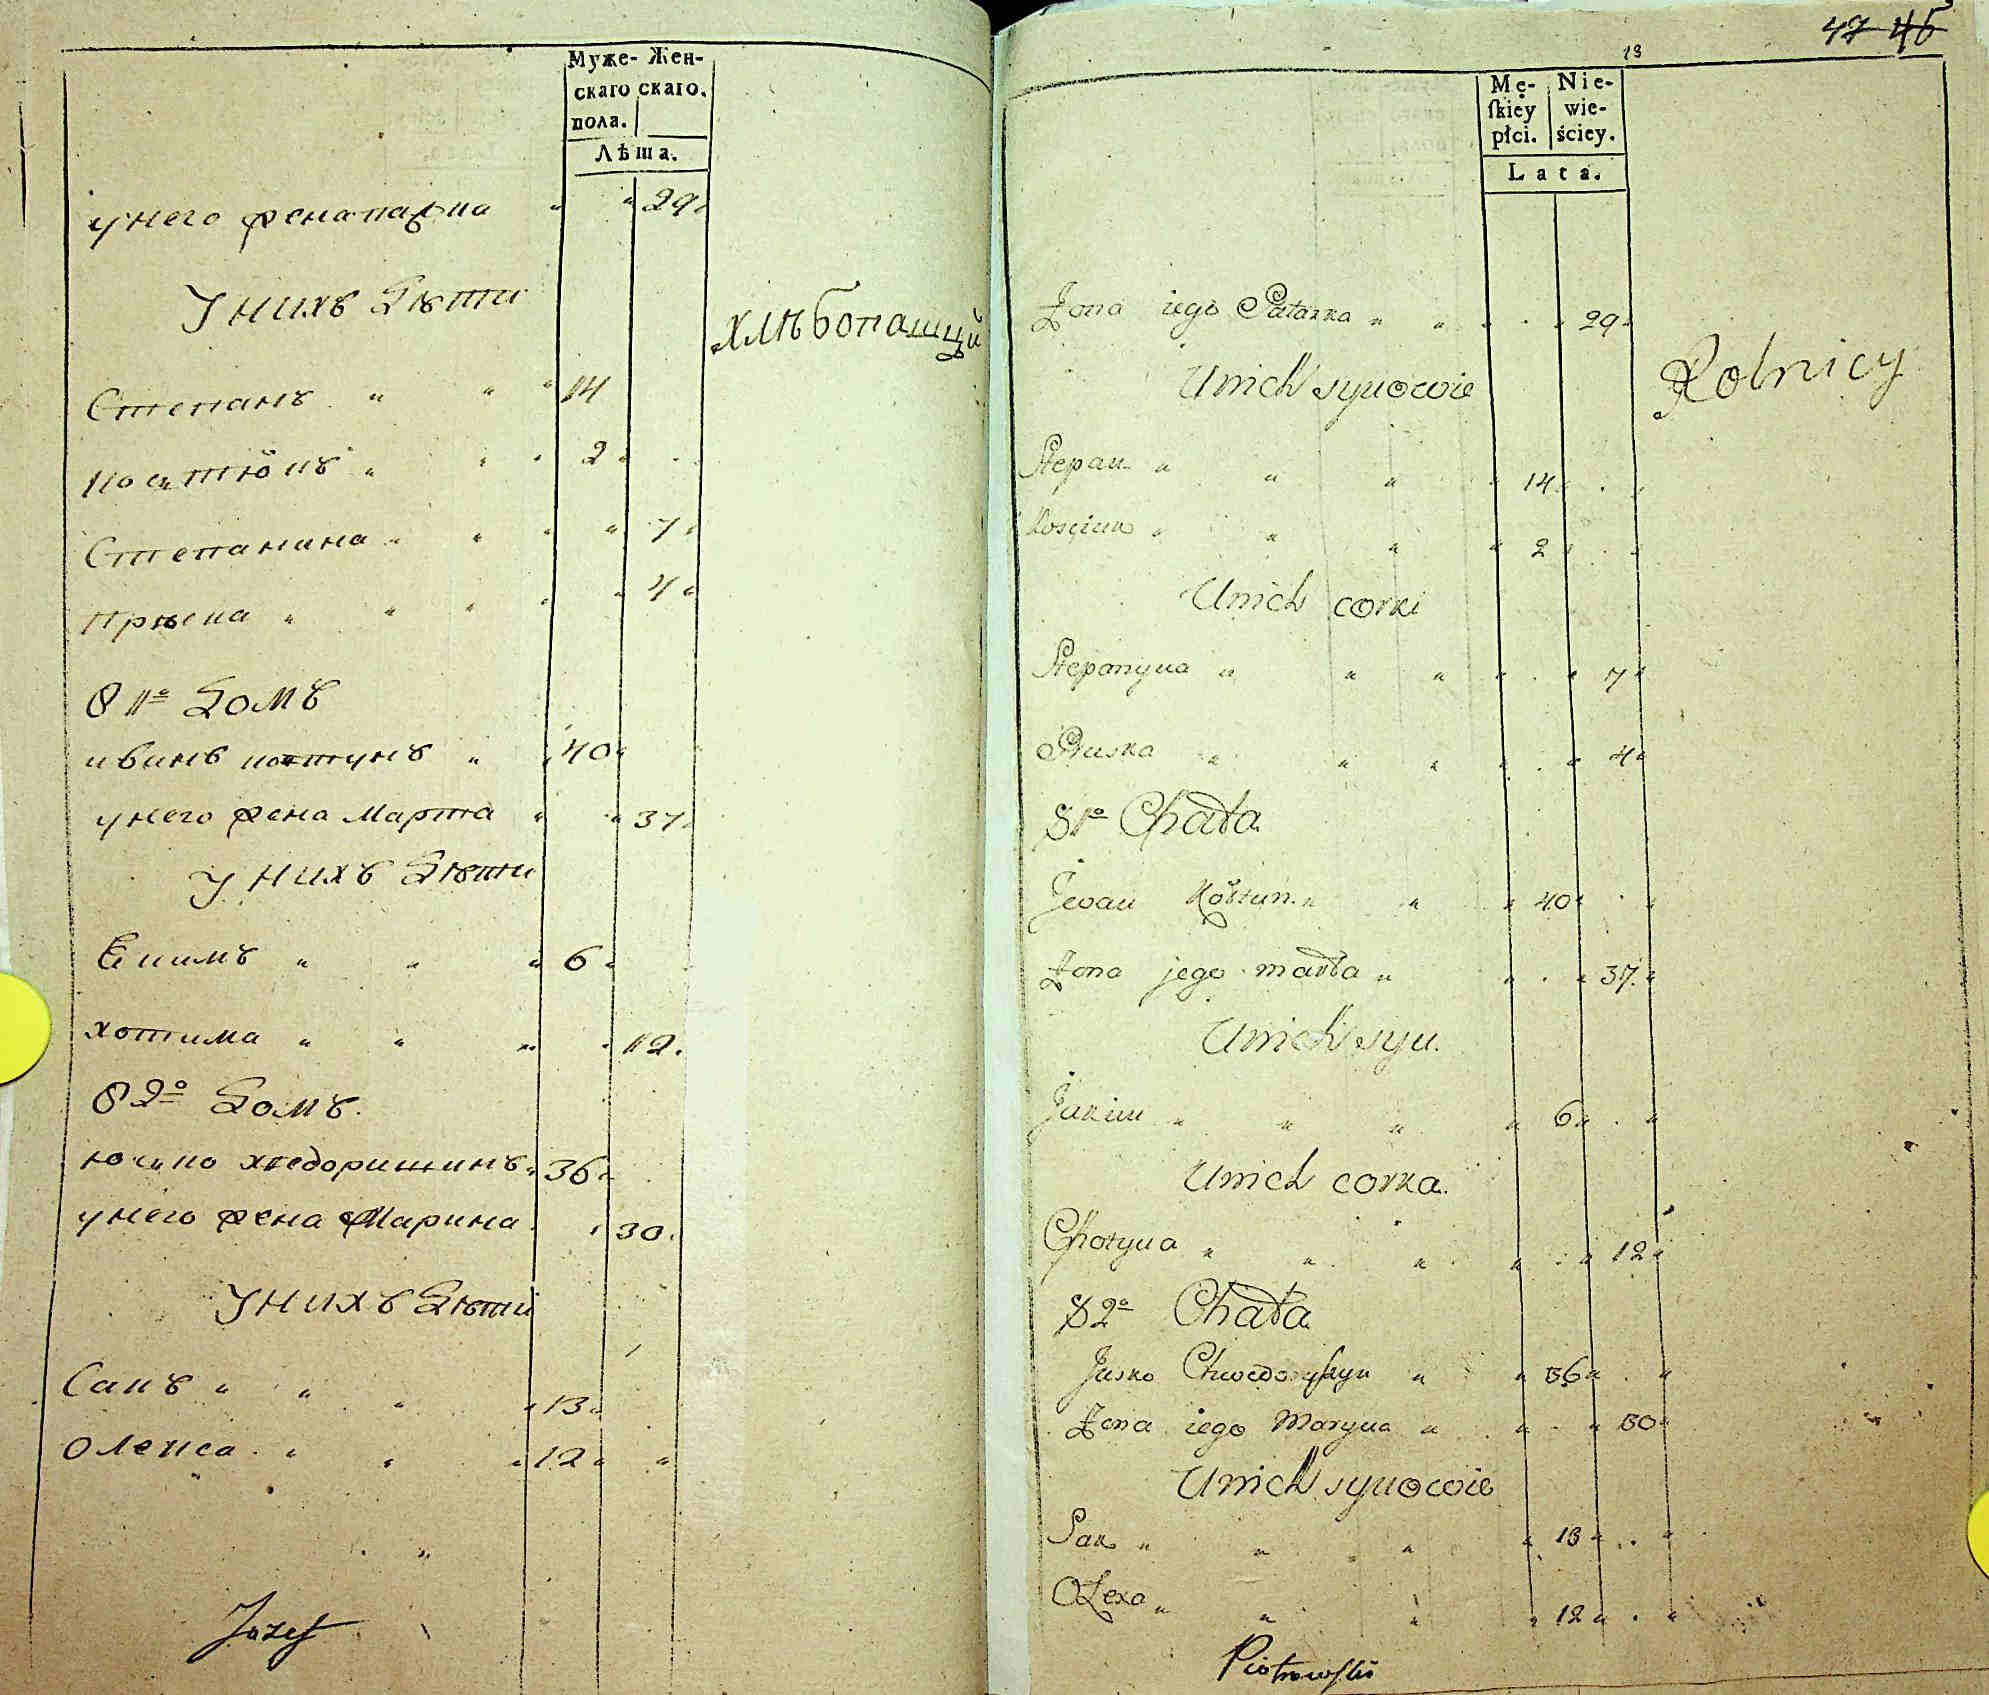 Муже- Жен-
скаго скаго.
пола.
Лѣта.
у него жена палажка 29
У нихъ дѣти
хлѣбопащцй
Степанъ 14
костюкъ 2
Степанина 7
Прѣска 4
81º домъ
иванъ костунъ 40
у него жена Марта 37
У нихъ дѣти
Екимъ 6
хотима 12.
82º домъ.
юсько хведоришинъ 36
у него жена Марина 30.
У нихъ дѣти
Сакъ 13
Олекса 12
Jozef
47 46
13
Mę- Nie-
ſkiey wie-
płci. ściey.
Lata.
Żona iego Pałazka 29
Unich synowie
Rolnicy
Stepan 14
Kosciuk 2
Unich corki
Stepanyna 7
Pruska 4
81º Chata
Jwan Kostun 40
Żona jego marta 37.
Unich syn.
Jakim 6
Unich corka.
Chotyna 12
82º Chata
Jusko Chwedoryszyn 36
Żona iego Maryna 30
Unich synowie
Sak 13
Olexa 12
Piotrowſki